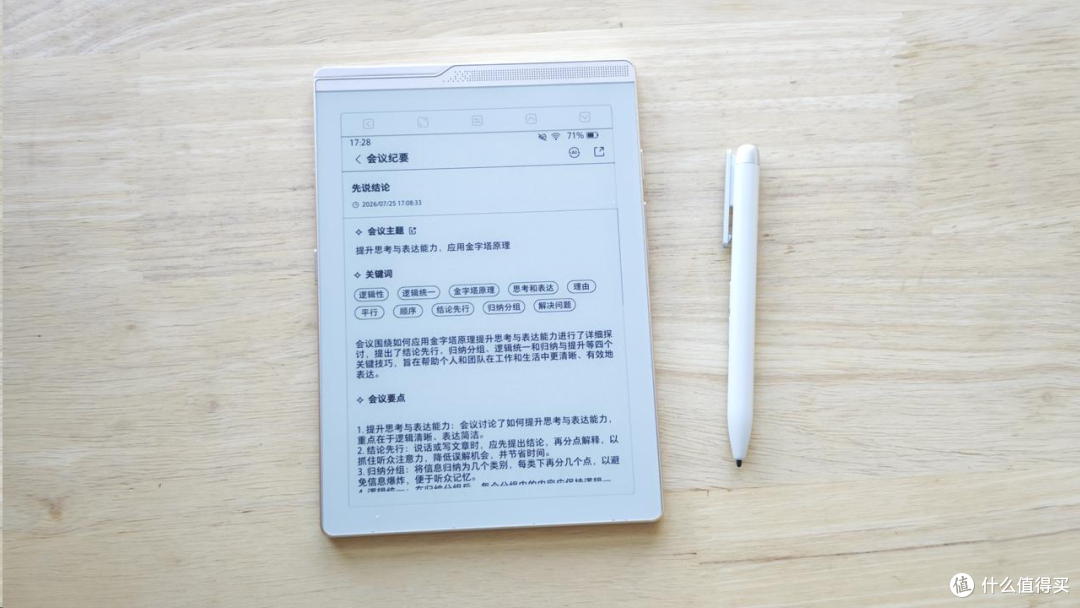 17:28 71%
会议纪要
先说结论
2026/07/25 17:08:33
会议主题
提升思考与表达能力，应用金字塔原理
关键词
逻辑性 逻辑统一 金字塔原理 思考和表达 理由
平行 顺序 结论先行 归纳分组 解决问题
会议围绕如何应用金字塔原理提升思考与表达能力进行了详细探
讨，提出了结论先行、归纳分组、逻辑统一和归纳与提升等四个
关键技巧，旨在帮助个人和团队在工作和生活中更清晰、有效地
表达。
会议要点
1. 提升思考与表达能力：会议讨论了如何提升思考与表达能力，
重点在于逻辑清晰、表达简洁。
2. 结论先行：说话或写文章时，应先提出结论，再分点解释，以
抓住听众注意力，降低误解机会，并节省时间。
3. 归纳分组：将信息归纳为几个类别，每类下再分几个点，以避
免信息爆炸，便于听众记忆。
4. 逻辑统一：在归纳分组后，每个分组中的内容应保持逻辑一
值 什么值得买